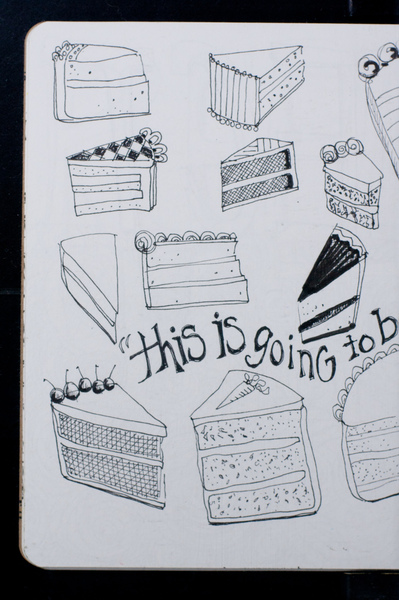 "this is going to b